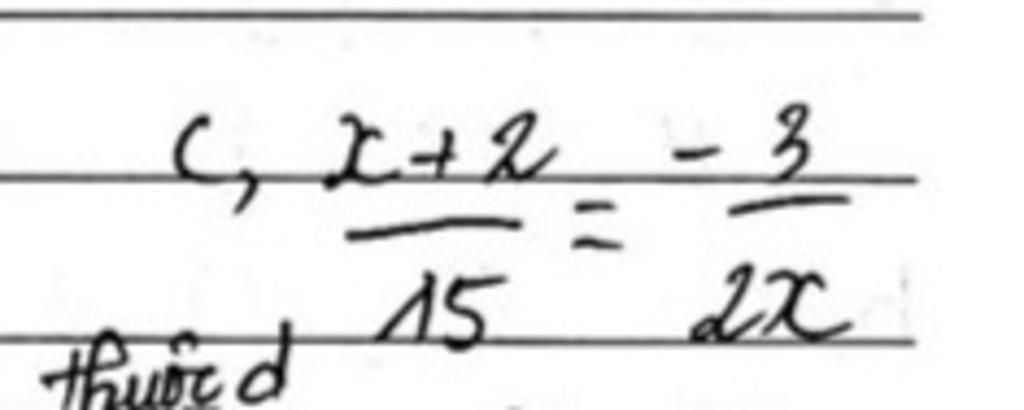 c, x+2 / 15 = -3 / 2x
thuộc d